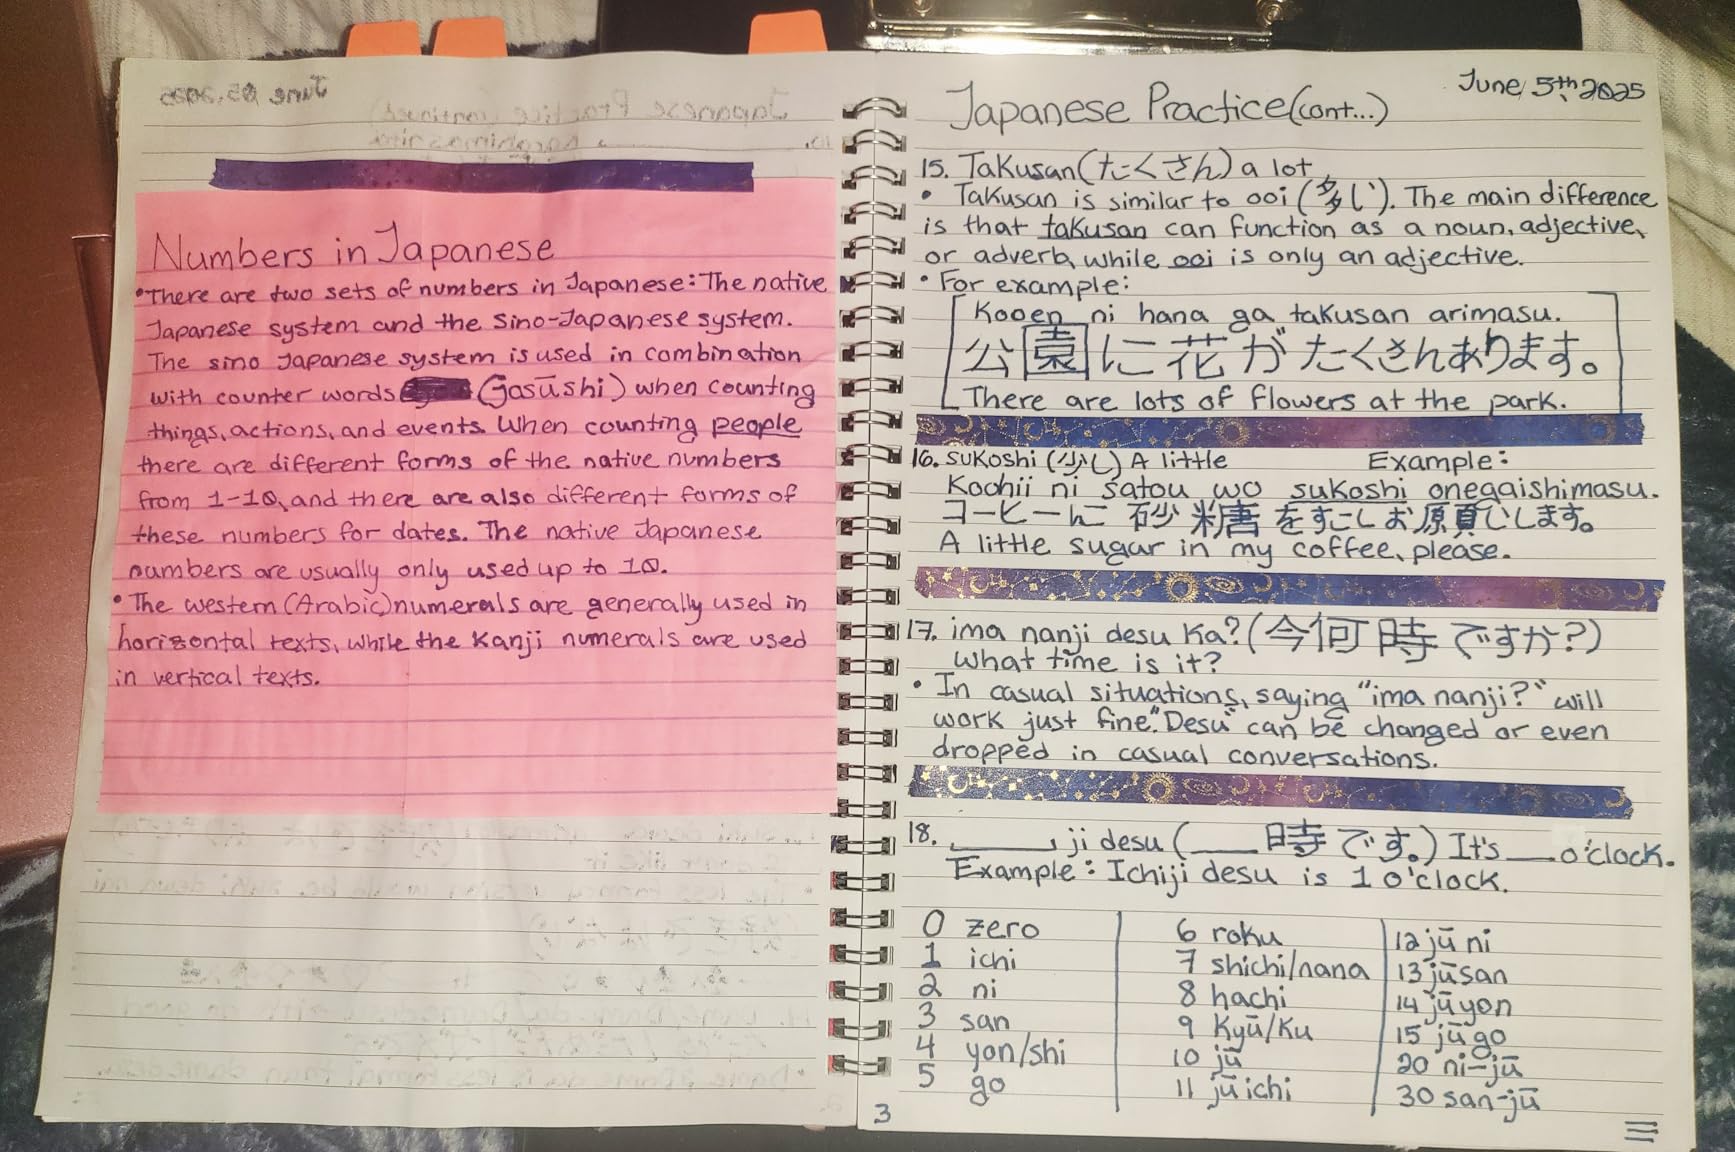 Numbers in Japanese
• There are two sets of numbers in Japanese: The native
Japanese system and the Sino-Japanese system.
The sino Japanese system is used in combination
with counter words (josūshi) when counting
things, actions, and events. When counting people
there are different forms of the native numbers
from 1-10, and there are also different forms of
these numbers for dates. The native Japanese
numbers are usually only used up to 10.
• The western (Arabic) numerals are generally used in
horizontal texts, while the Kanji numerals are used
in vertical texts.
June 5th, 2025
Japanese Practice (cont...)
15. Takusan (たくさん) a lot
• Takusan is similar to ooi (多い). The main difference
is that takusan can function as a noun, adjective,
or adverb, while ooi is only an adjective.
• For example:
Kooen ni hana ga takusan arimasu.
公園に花がたくさんあります。
There are lots of flowers at the park.
16. sukoshi (少し) A little Example:
Koohii ni satou wo sukoshi onegaishimasu.
コーヒーに砂糖をすこしお願いします。
A little sugar in my coffee, please.
17. ima nanji desu ka? (今何時ですか?)
What time is it?
• In casual situations, saying "ima nanji?" will
work just fine. "Desu" can be changed or even
dropped in casual conversations.
18. ______ ji desu (___時です。) It's ___ o'clock.
Example: Ichiji desu is 1 o'clock.
0 zero
1 ichi
2 ni
3 san
4 yon/shi
5 go
6 roku
7 shichi/nana
8 hachi
9 kyū/ku
10 jū
11 jū ichi
12 jū ni
13 jū san
14 jū yon
15 jū go
20 ni-jū
30 san-jū
3
三